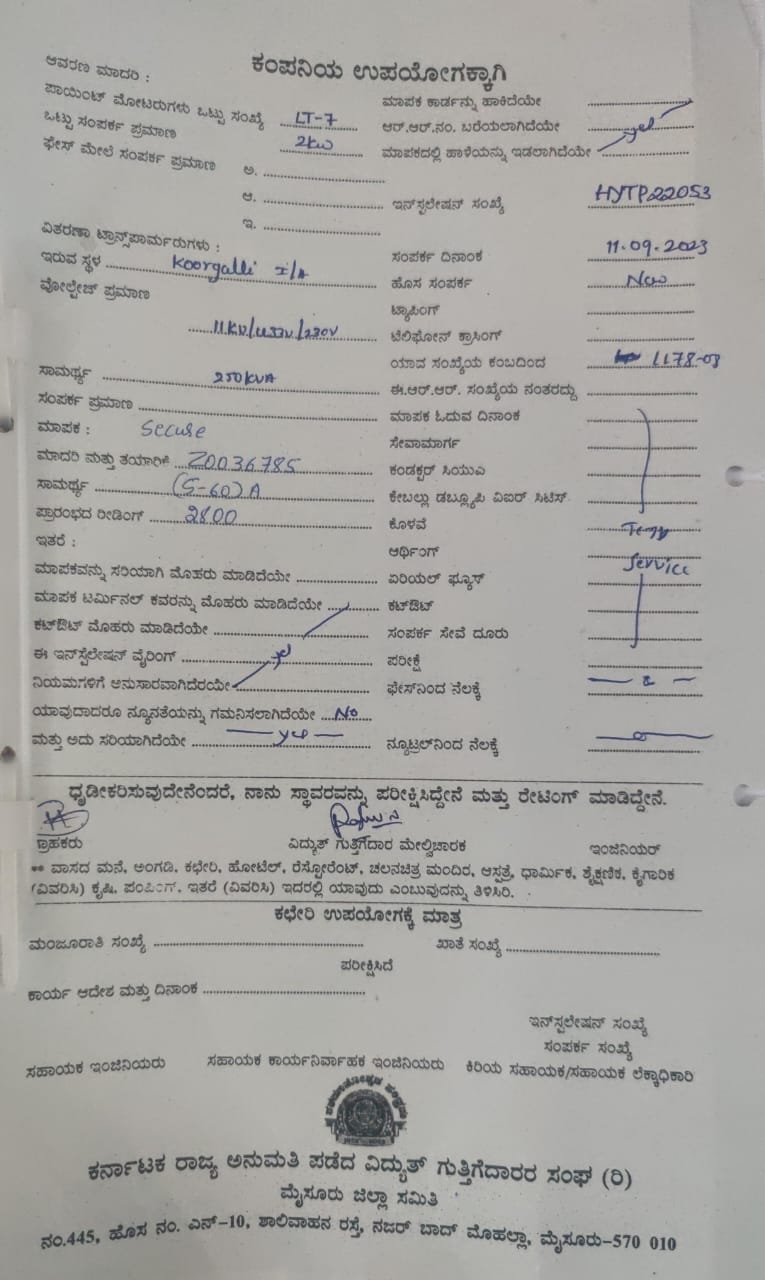 ಕಂಪನಿಯ ಉಪಯೋಗಕ್ಕಾಗಿ
ಆವರಣ ಮಾದರಿ :
ಪಾಯಿಂಟ್ ಮೋಟರುಗಳು ಒಟ್ಟು ಸಂಖ್ಯೆ LT-7
ಒಟ್ಟು ಸಂಪರ್ಕ ಪ್ರಮಾಣ 2kw
ಫೇಸ್ ಮೇಲೆ ಸಂಪರ್ಕ ಪ್ರಮಾಣ ಅ.
ಆ.
ಇ.
ವಿತರಣಾ ಟ್ರಾನ್ಸ್‌ಪಾರ್ಮರುಗಳು :
ಇರುವ ಸ್ಥಳ Koorgalli I/A
ವೋಲ್ಟೇಜ್ ಪ್ರಮಾಣ
11KV/433V/230V
ಸಾಮರ್ಥ್ಯ 250KVA
ಸಂಪರ್ಕ ಪ್ರಮಾಣ
ಮಾಪಕ : Secure
ಮಾದರಿ ಮತ್ತು ತಯಾರಿಕೆ Z0036785
ಸಾಮರ್ಥ್ಯ (5-60)A
ಪ್ರಾರಂಭದ ರೀಡಿಂಗ್ 2800
ಇತರೆ :
ಮಾಪಕವನ್ನು ಸರಿಯಾಗಿ ಮೊಹರು ಮಾಡಿದೆಯೇ
ಮಾಪಕ ಟರ್ಮಿನಲ್ ಕವರನ್ನು ಮೊಹರು ಮಾಡಿದೆಯೇ
ಕಟ್‌ಔಟ್ ಮೊಹರು ಮಾಡಿದೆಯೇ
ಈ ಇನ್‌ಸ್ಟಲೇಷನ್ ವೈರಿಂಗ್ yes
ನಿಯಮಗಳಿಗೆ ಅನುಸಾರವಾಗಿದೆರಯೇ
ಯಾವುದಾದರೂ ನ್ಯೂನತೆಯನ್ನು ಗಮನಿಸಲಾಗಿದೆಯೇ No
ಮತ್ತು ಅದು ಸರಿಯಾಗಿದೆಯೇ yes
ಮಾಪಕ ಕಾರ್ಡನ್ನು ಹಾಕಿದೆಯೇ
ಆರ್.ಆರ್.ನಂ. ಬರೆಯಲಾಗಿದೆಯೇ yes
ಮಾಪಕದಲ್ಲಿ ಹಾಳೆಯನ್ನು ಇಡಲಾಗಿದೆಯೇ
ಇನ್‌ಸ್ಟಲೇಷನ್ ಸಂಖ್ಯೆ HYTP22053
ಸಂಪರ್ಕ ದಿನಾಂಕ 11.09.2023
ಹೊಸ ಸಂಪರ್ಕ New
ಟ್ಯಾಪಿಂಗ್
ಟೆಲಿಫೋನ್ ಕ್ರಾಸಿಂಗ್
ಯಾವ ಸಂಖ್ಯೆಯ ಕಂಬದಿಂದ L178-03
ಈ.ಆರ್.ಆರ್. ಸಂಖ್ಯೆಯ ನಂತರದ್ದು
ಮಾಪಕ ಓದುವ ದಿನಾಂಕ
ಸೇವಾಮಾರ್ಗ
ಕಂಡಕ್ಟರ್ ಸಿಯುವಿ
ಕೇಬಲ್ಲು ಡಬ್ಲ್ಯೂಪಿ ವಿಐರ್ ಸಿಟಿಸ್
ಕೊಳವೆ Temp
ಆರ್ಥಿಂಗ್ Service
ಏರಿಯಲ್ ಫ್ಯೂಸ್
ಕಟ್‌ಔಟ್
ಸಂಪರ್ಕ ಸೇವೆ ದೂರು
ಪರೀಕ್ಷೆ
ಫೇಸ್‌ನಿಂದ ನೆಲಕ್ಕೆ
ನ್ಯೂಟ್ರಲ್‌ನಿಂದ ನೆಲಕ್ಕೆ
ಧೃಡೀಕರಿಸುವುದೇನೆಂದರೆ, ನಾನು ಸ್ಥಾವರವನ್ನು ಪರೀಕ್ಷಿಸಿದ್ದೇನೆ ಮತ್ತು ರೇಟಿಂಗ್ ಮಾಡಿದ್ದೇನೆ.
ಗ್ರಾಹಕರು ವಿದ್ಯುತ್ ಗುತ್ತಿಗೆದಾರ ಮೇಲ್ವಿಚಾರಕ ಇಂಜಿನಿಯರ್
** ವಾಸದ ಮನೆ, ಅಂಗಡಿ, ಕಛೇರಿ, ಹೋಟೆಲ್, ರೆಸ್ಟೋರೆಂಟ್, ಚಲನಚಿತ್ರ ಮಂದಿರ, ಆಸ್ಪತ್ರೆ, ಧಾರ್ಮಿಕ, ಶೈಕ್ಷಣಿಕ, ಕೈಗಾರಿಕ
(ವಿವರಿಸಿ) ಕೃಷಿ, ಪಂಪಿಂಗ್, ಇತರೆ (ವಿವರಿಸಿ) ಇದರಲ್ಲಿ ಯಾವುದು ಎಂಬುವುದನ್ನು ತಿಳಿಸಿರಿ.
ಕಛೇರಿ ಉಪಯೋಗಕ್ಕೆ ಮಾತ್ರ
ಮಂಜೂರಾತಿ ಸಂಖ್ಯೆ ಖಾತೆ ಸಂಖ್ಯೆ
ಪರೀಕ್ಷಿಸಿದೆ
ಕಾರ್ಯ ಆದೇಶ ಮತ್ತು ದಿನಾಂಕ
ಇನ್‌ಸ್ಟಲೇಷನ್ ಸಂಖ್ಯೆ
ಸಂಪರ್ಕ ಸಂಖ್ಯೆ
ಸಹಾಯಕ ಇಂಜಿನಿಯರು ಸಹಾಯಕ ಕಾರ್ಯನಿರ್ವಾಹಕ ಇಂಜಿನಿಯರು ಕಿರಿಯ ಸಹಾಯಕ/ಸಹಾಯಕ ಲೆಕ್ಕಾಧಿಕಾರಿ
ಕರ್ನಾಟಕ ರಾಜ್ಯ ಅನುಮತಿ ಪಡೆದ ವಿದ್ಯುತ್ ಗುತ್ತಿಗೆದಾರರ ಸಂಘ (ರಿ)
ಮೈಸೂರು ಜಿಲ್ಲಾ ಸಮಿತಿ
ನಂ.445, ಹೊಸ ನಂ. ಎನ್-10, ಶಾಲಿವಾಹನ ರಸ್ತೆ, ನಜರ್ ಬಾದ್ ಮೊಹಲ್ಲಾ, ಮೈಸೂರು-570 010